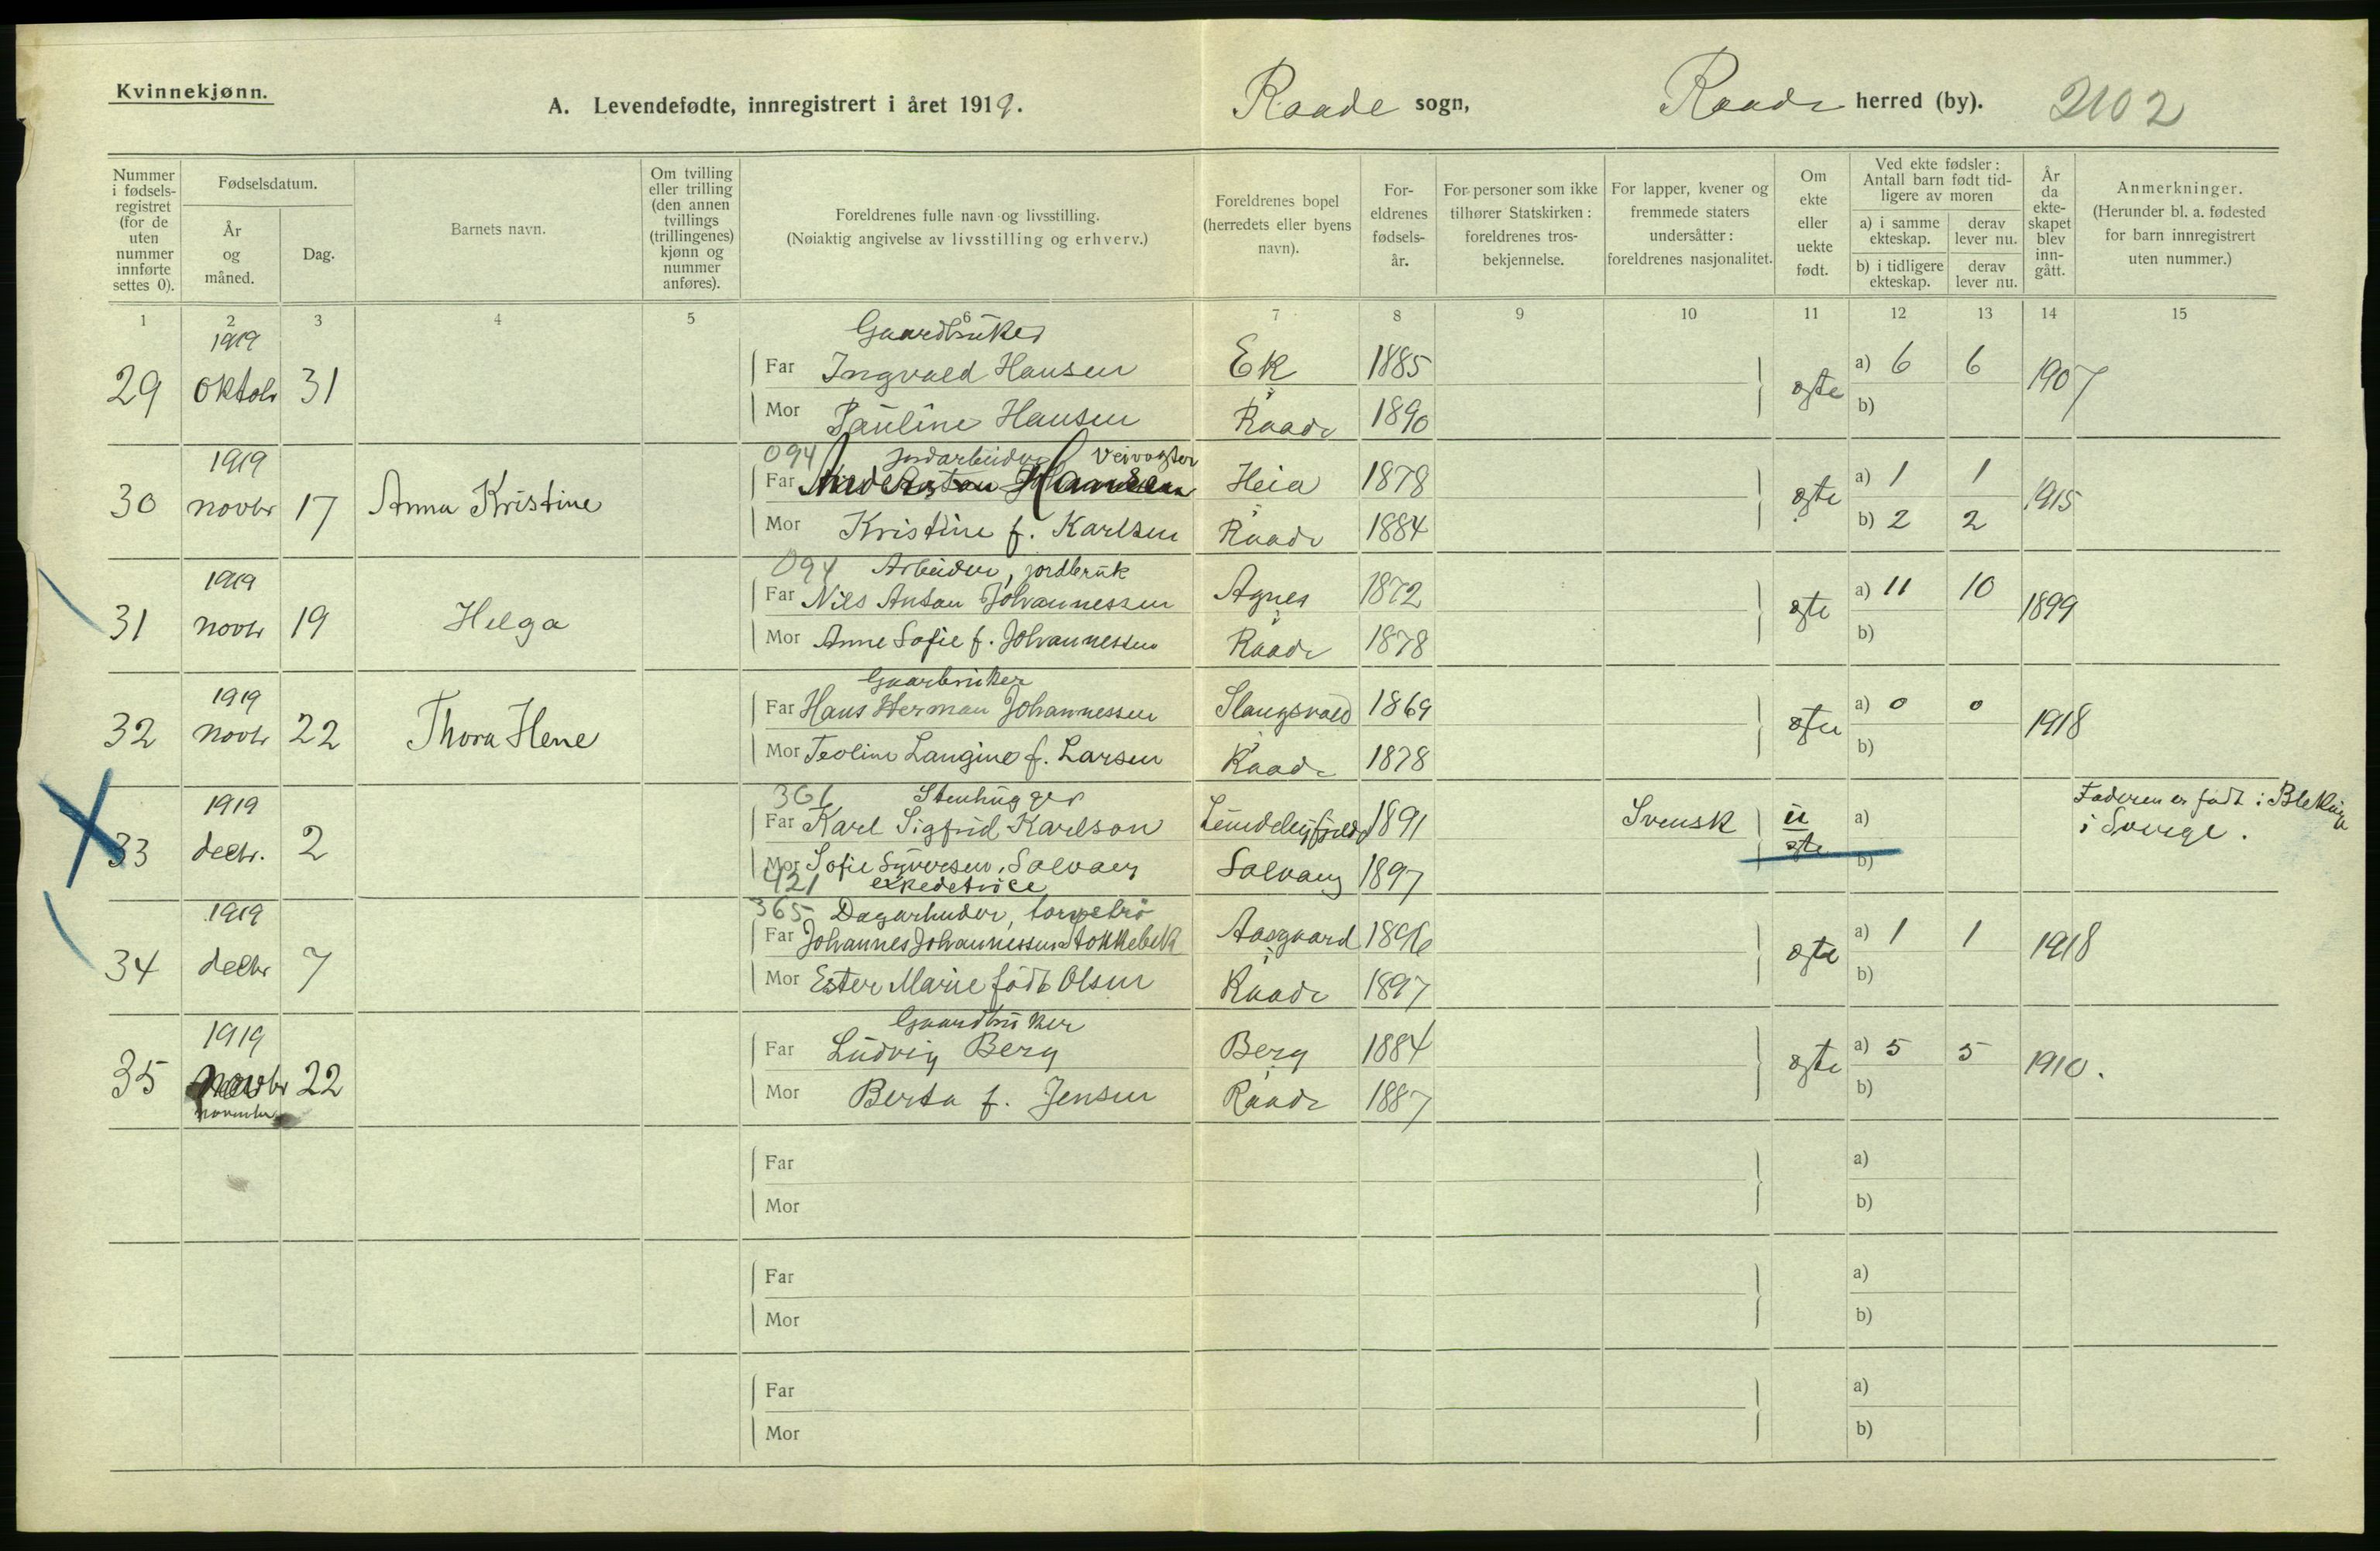 Kvinnekjønn.
A. Levendefødte, innregistrert i året 1919.
Raade sogn,
Raade herred (by).
2102
Nummer i fødsels-registret (for de uten nummer innførte settes 0).
Fødselsdatum.
År og måned.
Dag.
Barnets navn.
Om tvilling eller trilling (den annen tvillings (trillingenes) kjønn og nummer anføres).
Foreldrenes fulle navn og livsstilling.
(Nøiaktig angivelse av livsstilling og erhverv.)
Foreldrenes bopel (herredets eller byens navn).
For-eldrenes fødsels-år.
For personer som ikke tilhører Statskirken: foreldrenes tros-bekjennelse.
For lapper, kvener og fremmede staters undersåtter: foreldrenes nasjonalitet.
Om ekte eller uekte født.
Ved ekte fødsler: Antall barn født tid-ligere av moren
a) i samme ekteskap.
derav lever nu.
b) i tidligere ekteskap.
derav lever nu.
År da ekte-skapet blev inn-gått.
Anmerkninger.
(Herunder bl. a. fødested for barn innregistrert uten nummer.)
1 2 3 4 5 6 7 8 9 10 11 12 13 14 15
1919 Gaardbruker
29 oktob 31 Far Ingvald Hansen Ek 1885 ægte a) 6 6 1907
Mor Pauline Hansen Raade 1890 b)
1919 094 Jordarbeider Veivogter
30 novbr 17 Anna Kristine Far Hansen Heia 1878 ægte a) 1 1 1915
Mor Kristine f. Karlsen Raade 1884 b) 2 2
1919 094 Arbeider, jordbruk
31 novbr 19 Helga Far Nils Anton Johannessen Agnes 1872 ægte a) 11 10 1899
Mor Anne Sofie f. Johannessen Raade 1878 b)
1919 Gaarbruker
32 novbr 22 Thora Hene Far Hans Herman Johannessen Slangsvold 1869 ægte a) 0 0 1918
Mor Teoline Langine f. Larsen Raade 1878 b)
1919 361 Stenhugger
33 decbr. 2 Far Karl Sigfrid Karlson 1891 Svensk u ægte a) Faderen er født i Blekinge i Sverge.
Mor Sofie Syversen, Solvang Solvang 1897 b)
421 expeditrice
1919 365 Dagarbeider, torvströ
34 decbr 7 Far Johannes Johannessen Stokkebek Aasgaard 1896 ægte a) 1 1 1918
Mor Ester Marie født Olsen Raade 1897 b)
1919 Gaardbruker
35 novbr 22 Far Ludvig Berg Berg 1884 ægte a) 5 5 1910.
november Mor Berta f. Jensen Raade 1887 b)
Far a)
Mor b)
Far a)
Mor b)
Far a)
Mor b)